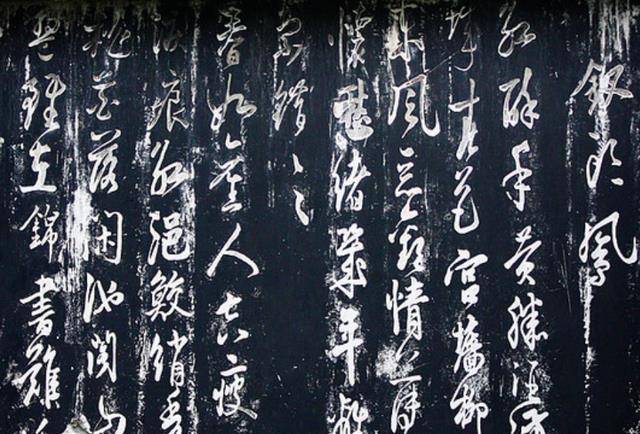 釵頭鳳
紅酥手黃縢酒
城春色宮墻柳
東風惡歡情薄
懷愁緒幾年離
索錯々々
春如舊人空瘦
淚痕紅浥鮫綃透
桃花落閑池閣山
盟雖在錦書難